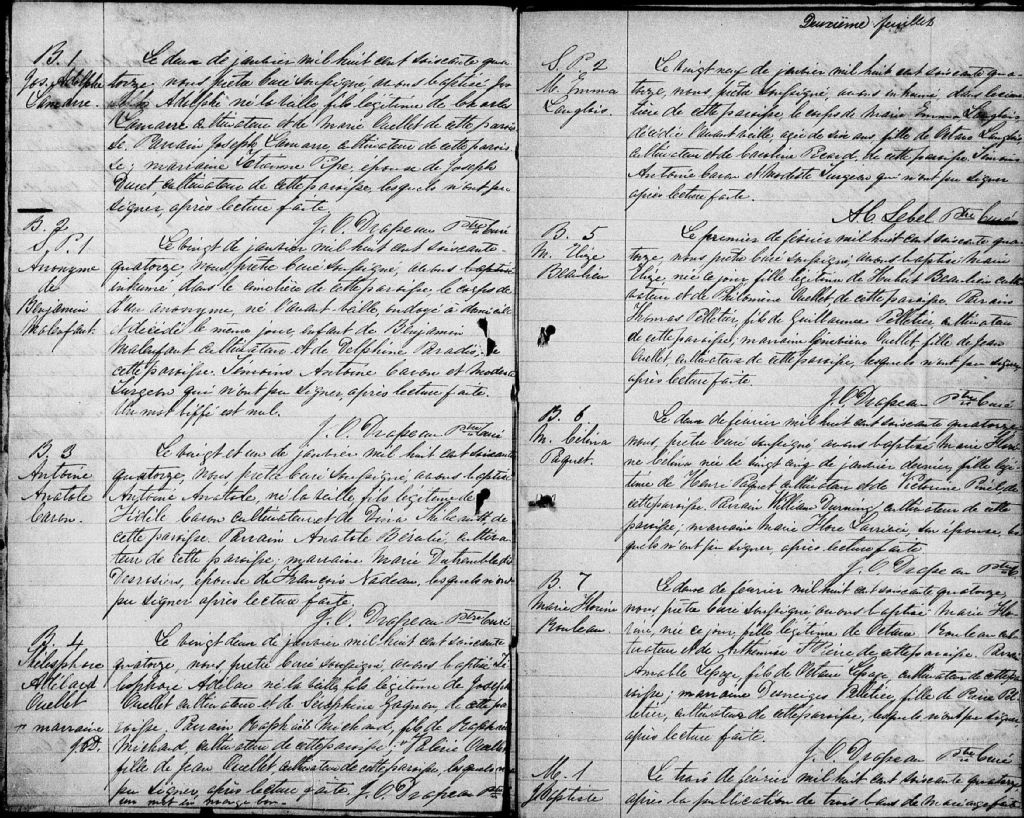 B. 1
Jos. Adolphe
Lamarre.
Le deux de janvier mil huit cent soixante qua-
torze, nous prêtre curé soussigné avons baptisé Jo
Adolphe né la veille, fils légitime de
Lamarre cultivateur et de Marie Ouellet de cette parois
se. Parrain Joseph Lamarre, cultivateur de cette parois
se; marraine Pipe, épouse de Joseph
Duret cultivateur de cette paroisse, lesquels n'ont pu
signer, après lecture faite.
J. O. Drapeau Ptre Curé
B. 2
S. P. 1
Anonyme
de
Benjamin
Malenfant.
Le vingt de janvier mil huit cent soixante-
quatorze, nous prêtre curé soussigné, avons baptisé
inhumé, dans le cimetière de cette paroisse, le corps de
d'un anonyme, né l'avant veille, ondoyé à
et décédé le même jour, enfant de Benjamin
Malenfant cultivateur et de Delphine Paradis, de
cette paroisse. Témoins Antoine Caron et Modeste
Turgeon qui n'ont pu signer, après lecture faite.
Un mot biffé est nul.
J. O. Drapeau Ptre Curé
B. 3
Antoine
Anatole
Caron.
Le vingt et un de janvier mil huit cent soixante
quatorze, nous prêtre curé soussigné, avons baptisé
Antoine Anatole, né la veille, fils légitime de
Fidèle Caron cultivateur et de Dina Thibeault de
cette paroisse. Parrain Anatole Bérubé, cultiva-
teur de cette paroisse; marraine Marie Dutremble dit
Desrosiers, épouse de François Nadeau, lesquels n'ont
pu signer après lecture faite.
J. O. Drapeau Ptre Curé
B. 4
Thelesphore
Adélard
Ouellet
+ marraine
J.O.D.
Le vingt deux de janvier mil huit cent soixante
quatorze, nous prêtre curé soussigné, avons baptisé Té
lesphore Adélar né la veille, fils légitime de Joseph
Ouellet cultivateur et de Séraphine Gagnon de cette pa
roisse. Parrain Raphaël Michaud, fils de
Michaud, cultivateur de cette paroisse; + Valérie Ouellet
fille de Jean Ouellet cultivateur de cette paroisse, lesquels n'ont
pu signer, après lecture faite. J. O. Drapeau Ptre
un mot en marge bon.
Deuxième feuillet
S. P. 2
M. Emma
Langlois.
Le vingt neuf de janvier mil huit cent soixante qua-
torze, nous prêtre soussigné, avons inhumé, dans le cime
tière de cette paroisse, le corps de Marie Emma Langlois
décédée l'avant veille, agée de six ans, fille de Octave Langlois
cultivateur et de Caroline Picard, de cette paroisse. Témoins
Antoine Caron et Modeste Turgeon qui n'ont pu signer
après lecture faite.
A C Lebel Ptre Curé
B. 5
M. Elize
Beaulieu
Le premier de février mil huit cent soixante qua
torze, nous prêtre curé soussigné, avons baptisé Marie
Elize, née ce jour, fille légitime de Hubert Beaulieu culti
vateur et de Philomène Ouellet de cette paroisse. Parrain
Thomas Pelletier, fils de Guillaume Pelletier cultivateur
de cette paroisse; marraine Geneviève Ouellet, fille de Jean
Ouellet, cultivateur de cette paroisse, lesquels n'ont pu signer
après lecture faite.
J. O. Drapeau Ptre Curé
B. 6
M. Célina
Paquet.
Le deux de février mil huit cent soixante quatorze
nous, prêtre curé soussigné avons baptisé Marie
Célina, née le vingt cinq de janvier dernier, fille légi
time de Henri Paquet cultivateur et de Victorine Ruel de
cette paroisse. Parrain William Durning cultivateur de cette
paroisse; marraine Marie Flore son épouse, les
quels n'ont pu signer, après lecture faite
J. O Drapeau Ptre C
B. 7
Marie Florine
Rouleau.
Le deux de février mil huit cent soixante quatorze,
nous prêtre curé soussigné avons baptisé Marie Flo
rine, née ce jour, fille légitime de Octave Rouleau cul
tivateur et de Arthemise St Pierre de cette paroisse. Parrain
Amable Lepage, fils de Octave Lepage, cultivateur de cette pa
roisse; marraine Desneiges Pelletier, fille de Pierre Pel
letier, cultivateur de cette paroisse, lesquels n'ont pu signer
après lecture faite.
J. O. Drapeau Ptre Curé
M. 1
J. Baptiste
Le trois de février mil huit cent soixante quatorze,
après la publication de trois bans de mariage faite